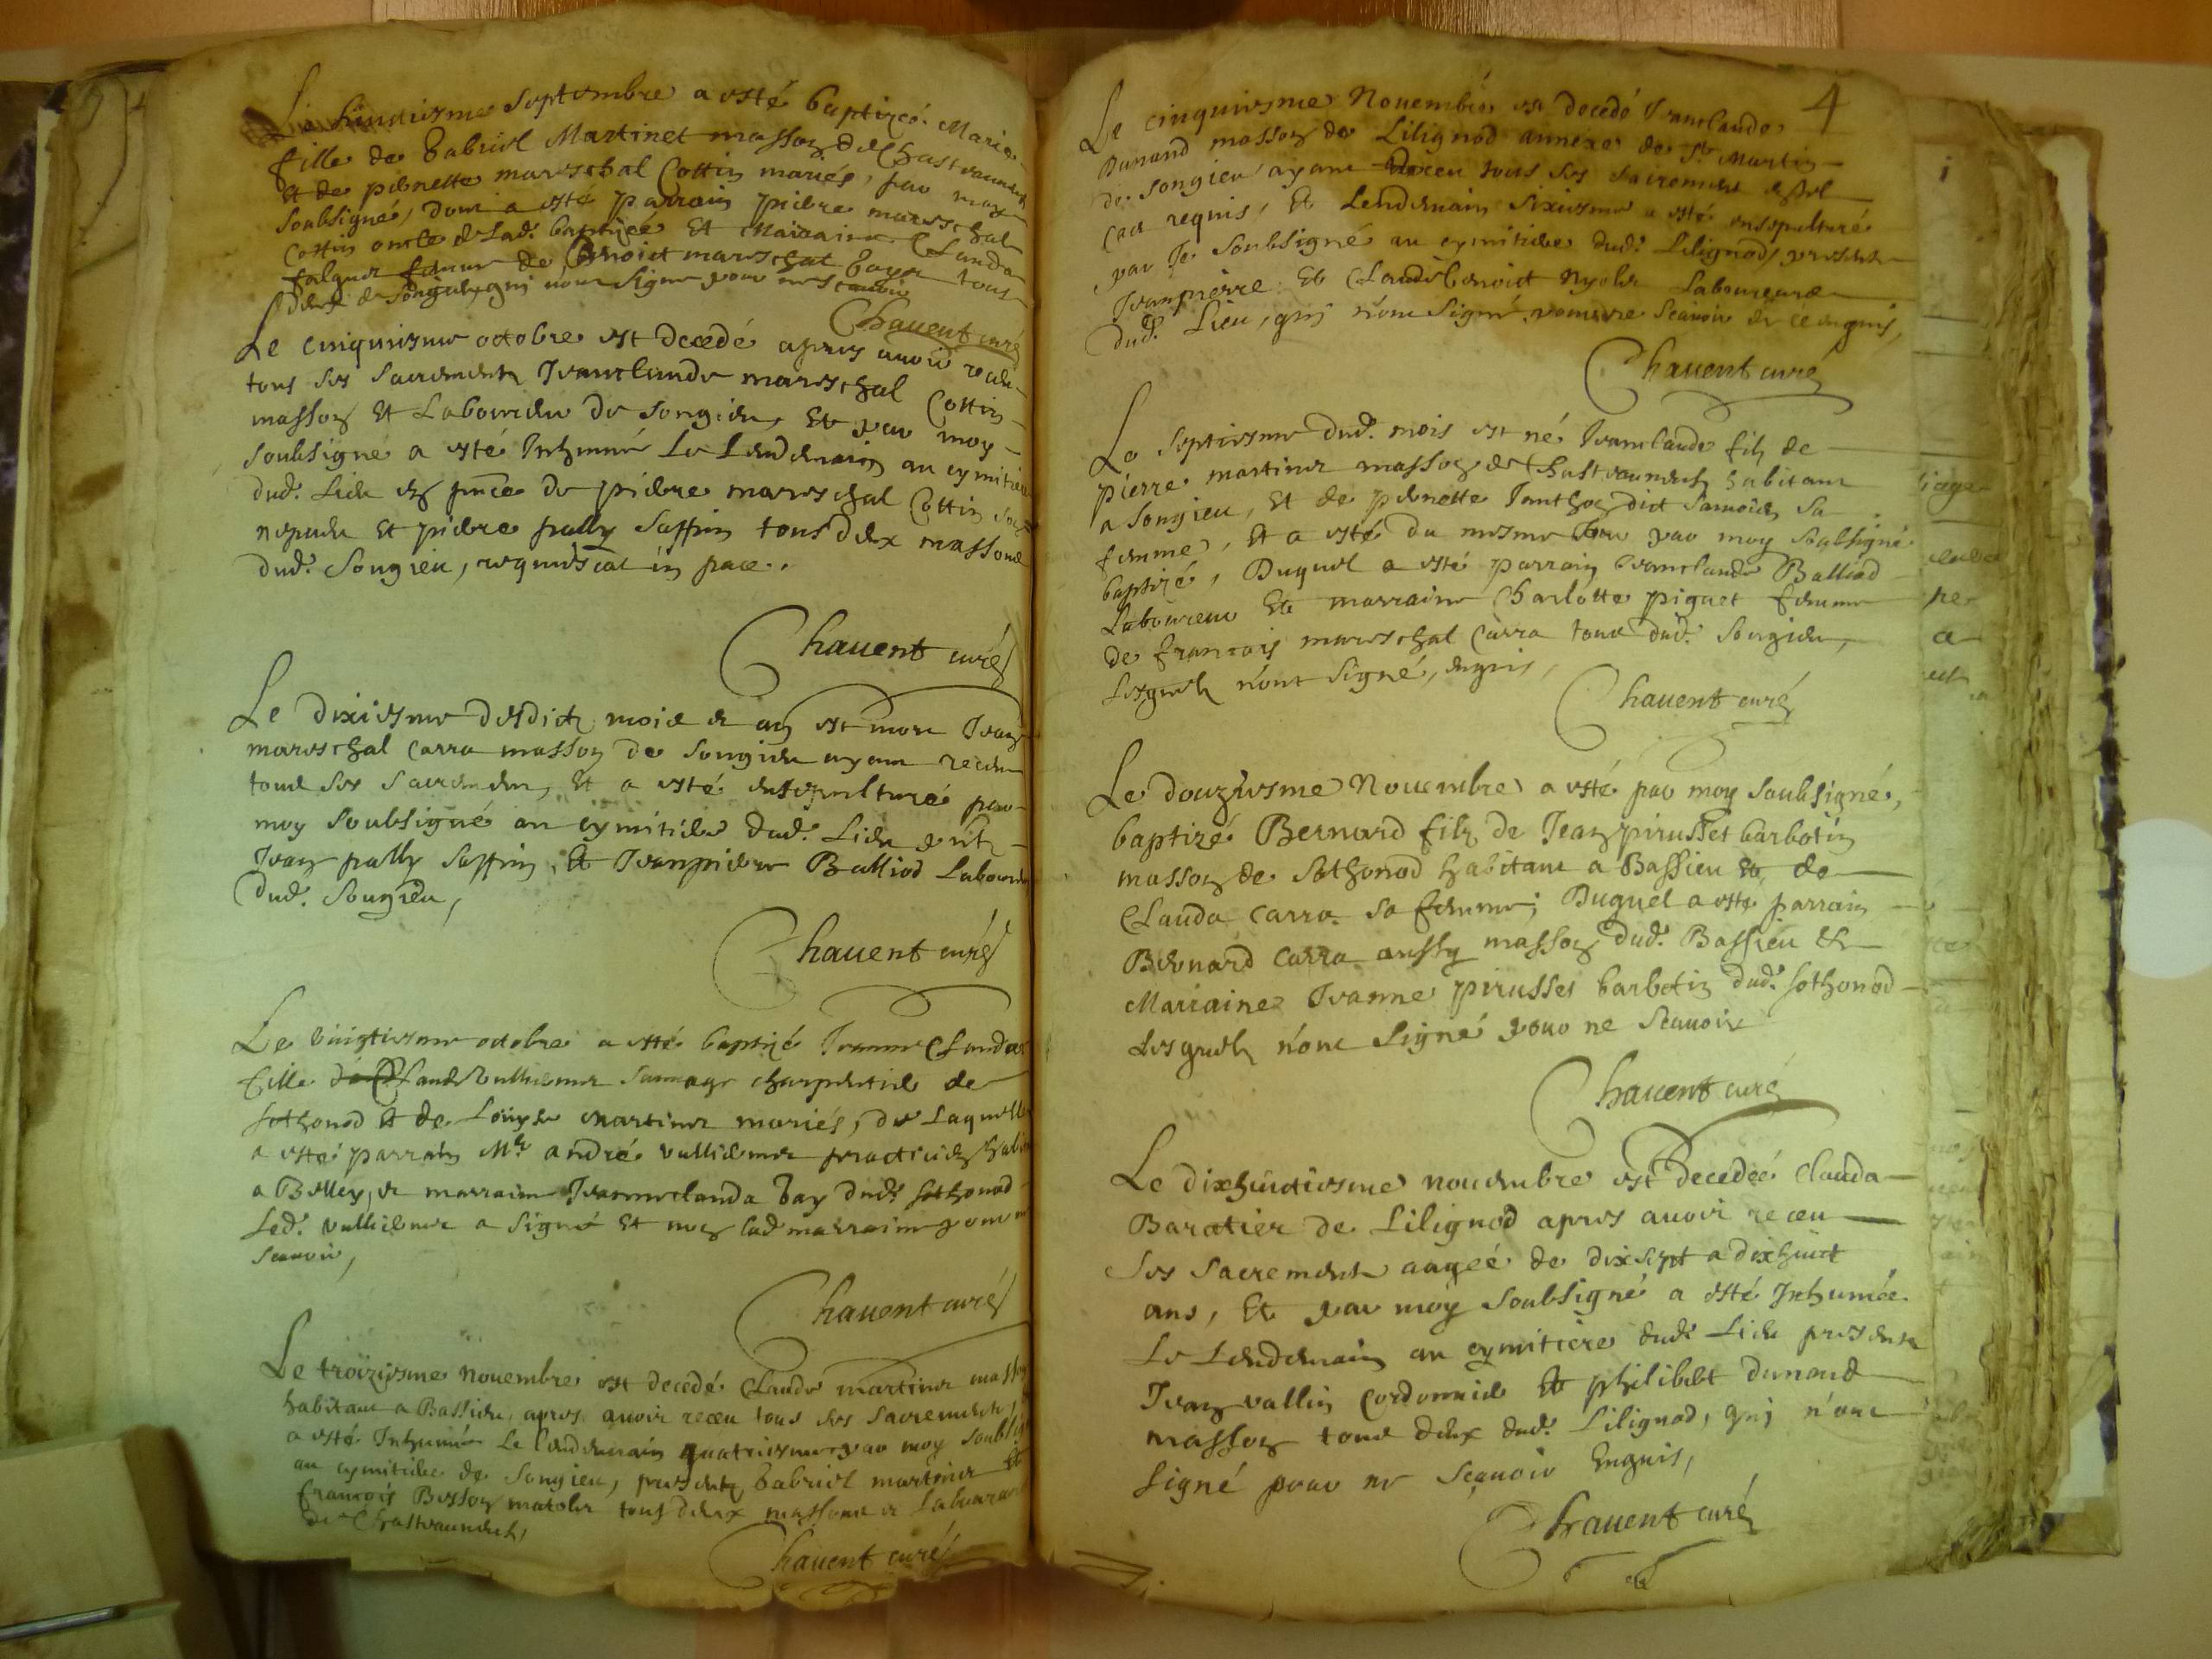 Le huictiesme septembre a esté baptizeé Marie
fille de Gabriel Martinet masson de Chasteauneuf
et de pernette mareschal Cottin mariés, par moy
soubsigné, dont a esté parrain pierre mareschal
Cottin oncle de lad. baptizeé et Maraine Clauda
falquet femme de Benoict mareschal tous
deux de Songieu, qui n'ont signe pour ne scavoir
Chauent curé
Le cinquiesme octobre est decedé apres avoir receu
tous ses sacrements Jeanclaude mareschal Cottin
masson et Laboureur de Songieu, et par moy
soubsigné a esté Inhumé Le Lendemain au cymitiere
dud. Lieu en pnce de pierre mareschal Cottin son
nepveu et pierre pally Saffin tous deux massons
dud. Songieu, requiescat in pace.
Chauent curé
Le dixiesme desdicts mois et an est mort Jean
mareschal Carra masson de Songieu ayant receu
tous ses sacremens, et a esté ensepulturé par
moy soubsigné au cymitiere dud. Lieu pnts
Jean pally Saffin, et Jeanpierre Balliod Laboureurs
dud. Songieu,
Chauent curé
Le vingtiesme octobre a esté baptizé Jeanne Clauda
fille de Claude Vulliemet charpentier de
Sothonod et de Louyse Martinet mariés, de Laquelle
a esté parrain Mr andré vulliemet practicien habitant
a Belley, et marraine Jeanneclauda bay dud. Sothonod
Led. vulliemet a signé et non lad marraine pour ne
scavoir,
Chauent curé
Le troizyesme Novembre est decedé Claude martinet masson
habitant a Bassieu, apres avoir receu tous ses sacrements, et
a esté Inhumé Le lendemain quatriesme par moy soubsigné
au cymitiere de Songieu, presents Gabriel martinet et
françois Besson tous deux massons et Laboureurs
de Chasteauneuf,
Chauent curé
4
Le cinquiesme Novembre est decedé Jeanclaude
Dunand masson de Lilignod annexe de St Martin
de Songieu ayant receu tous ses sacremens
cas requis, et Lendemain sixiesme a esté ensepulturé
par Je soubsigné au cymitiere dud. Lilignod, presents
Jeanpierre et Claudebenoict Laboureurs
dud. Lieu, qui n'ont signé pour ne scavoir de ce enquis,
Chauent curé
Le septiesme dud. mois est né Jeanclaude filz de
Pierre martinet masson de Chasteauneuf habitant
a Songieu, et de pernette dict sa
femme, et a esté du mesme jour par moy soubsigné
baptizé, Duquel a esté parrain Jeanclaude Balliod
Laboureur et marraine Charlotte piguet femme
de francois mareschal Carra tous dud. Songieu,
Lesquels n'ont signé, enquis,
Chauent curé
Le douziesme Novembre a esté par moy soubsigné,
baptizé Bernard filz de Jean pirusset barbotin
masson de Sothonod habitant a Bassieu et de
Clauda Carra sa femme; Duquel a esté parrain
Bernard Carra aussy masson dud. Bassieu et
Marraine Jeanne pirusset barbotin dud. Sothonod
Lesquels n'ont signé pour ne scavoir
Chauent curé
Le dixhuictiesme novembre est decedeé Clauda
Baratier de Lilignod apres avoir receu
ses sacrements aageé de dixsept a dixhuict
ans, et par moy soubsigné a esté Inhumée
Le Lendemain au cymitiere dud. Lieu presents
Jean vallin cordonnier et philibert dunand
masson tous deux dud. Lilignod, qui n'ont
signé pour ne scavoir Enquis,
Chauent curé